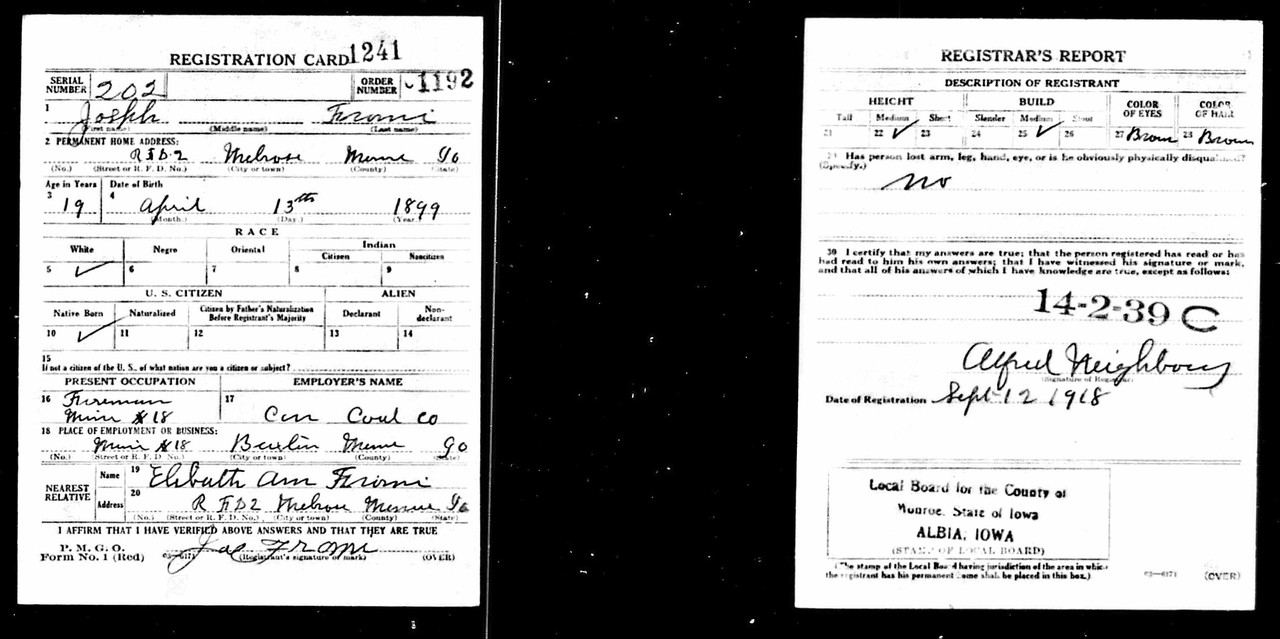 REGISTRATION CARD 1241
SERIAL NUMBER 202 ORDER NUMBER 1192
1 Joseph Fromi
(First name) (Middle name) (Last name)
2 PERMANENT HOME ADDRESS:
R F D 2 Melrose Monroe Io
(No.) (Street or R. F. D. No.) (City or town) (County) (State)
Age in Years Date of Birth
3 19 4 April 13th 1899
(Month.) (Day.) (Year.)
RACE
White Negro Oriental Indian
Citizen Noncitizen
5 ✓ 6 7 8 9
U. S. CITIZEN ALIEN
Native Born Naturalized Citizen by Father's Naturalization Before Registrant's Majority Declarant Non-declarant
10 ✓ 11 12 13 14
15
If not a citizen of the U. S., of what nation are you a citizen or subject?
PRESENT OCCUPATION EMPLOYER'S NAME
16 17
Mine #18 Con Coal Co
18 PLACE OF EMPLOYMENT OR BUSINESS:
Mine #18 Buxton Monroe Io
(No.) (Street or R. F. D. No.) (City or town) (County) (State)
NEAREST RELATIVE Name 19 Elsbath Ann Fromi
Address 20 R F D 2 Melrose Monroe Io
(No.) (Street or R. F. D. No.) (City or town) (County) (State)
I AFFIRM THAT I HAVE VERIFIED ABOVE ANSWERS AND THAT THEY ARE TRUE
P. M. G. O.
Form No. 1 (Red) 03-6171 Joe Fromi (Registrant's signature or mark) (OVER)
REGISTRAR'S REPORT
DESCRIPTION OF REGISTRANT
HEIGHT BUILD COLOR OF EYES COLOR OF HAIR
Tall Medium Short Slender Medium Stout
21 22 ✓ 23 24 25 ✓ 26 27 Brown 28 Brown
29 Has person lost arm, leg, hand, eye, or is he obviously physically disqualified?
(Specify.)
no
30 I certify that my answers are true; that the person registered has read or has
had read to him his own answers; that I have witnessed his signature or mark,
and that all of his answers of which I have knowledge are true, except as follows:
14-2-39 C
Alfred Neighbour
(Signature of Registrar)
Date of Registration Sept 12 1918
Local Board for the County of
Monroe, State of Iowa
ALBIA, IOWA
(STAMP OF LOCAL BOARD)
(The stamp of the Local Board having jurisdiction of the area in which
the registrant has his permanent home shall be placed in this box.) 03-6171 (OVER)